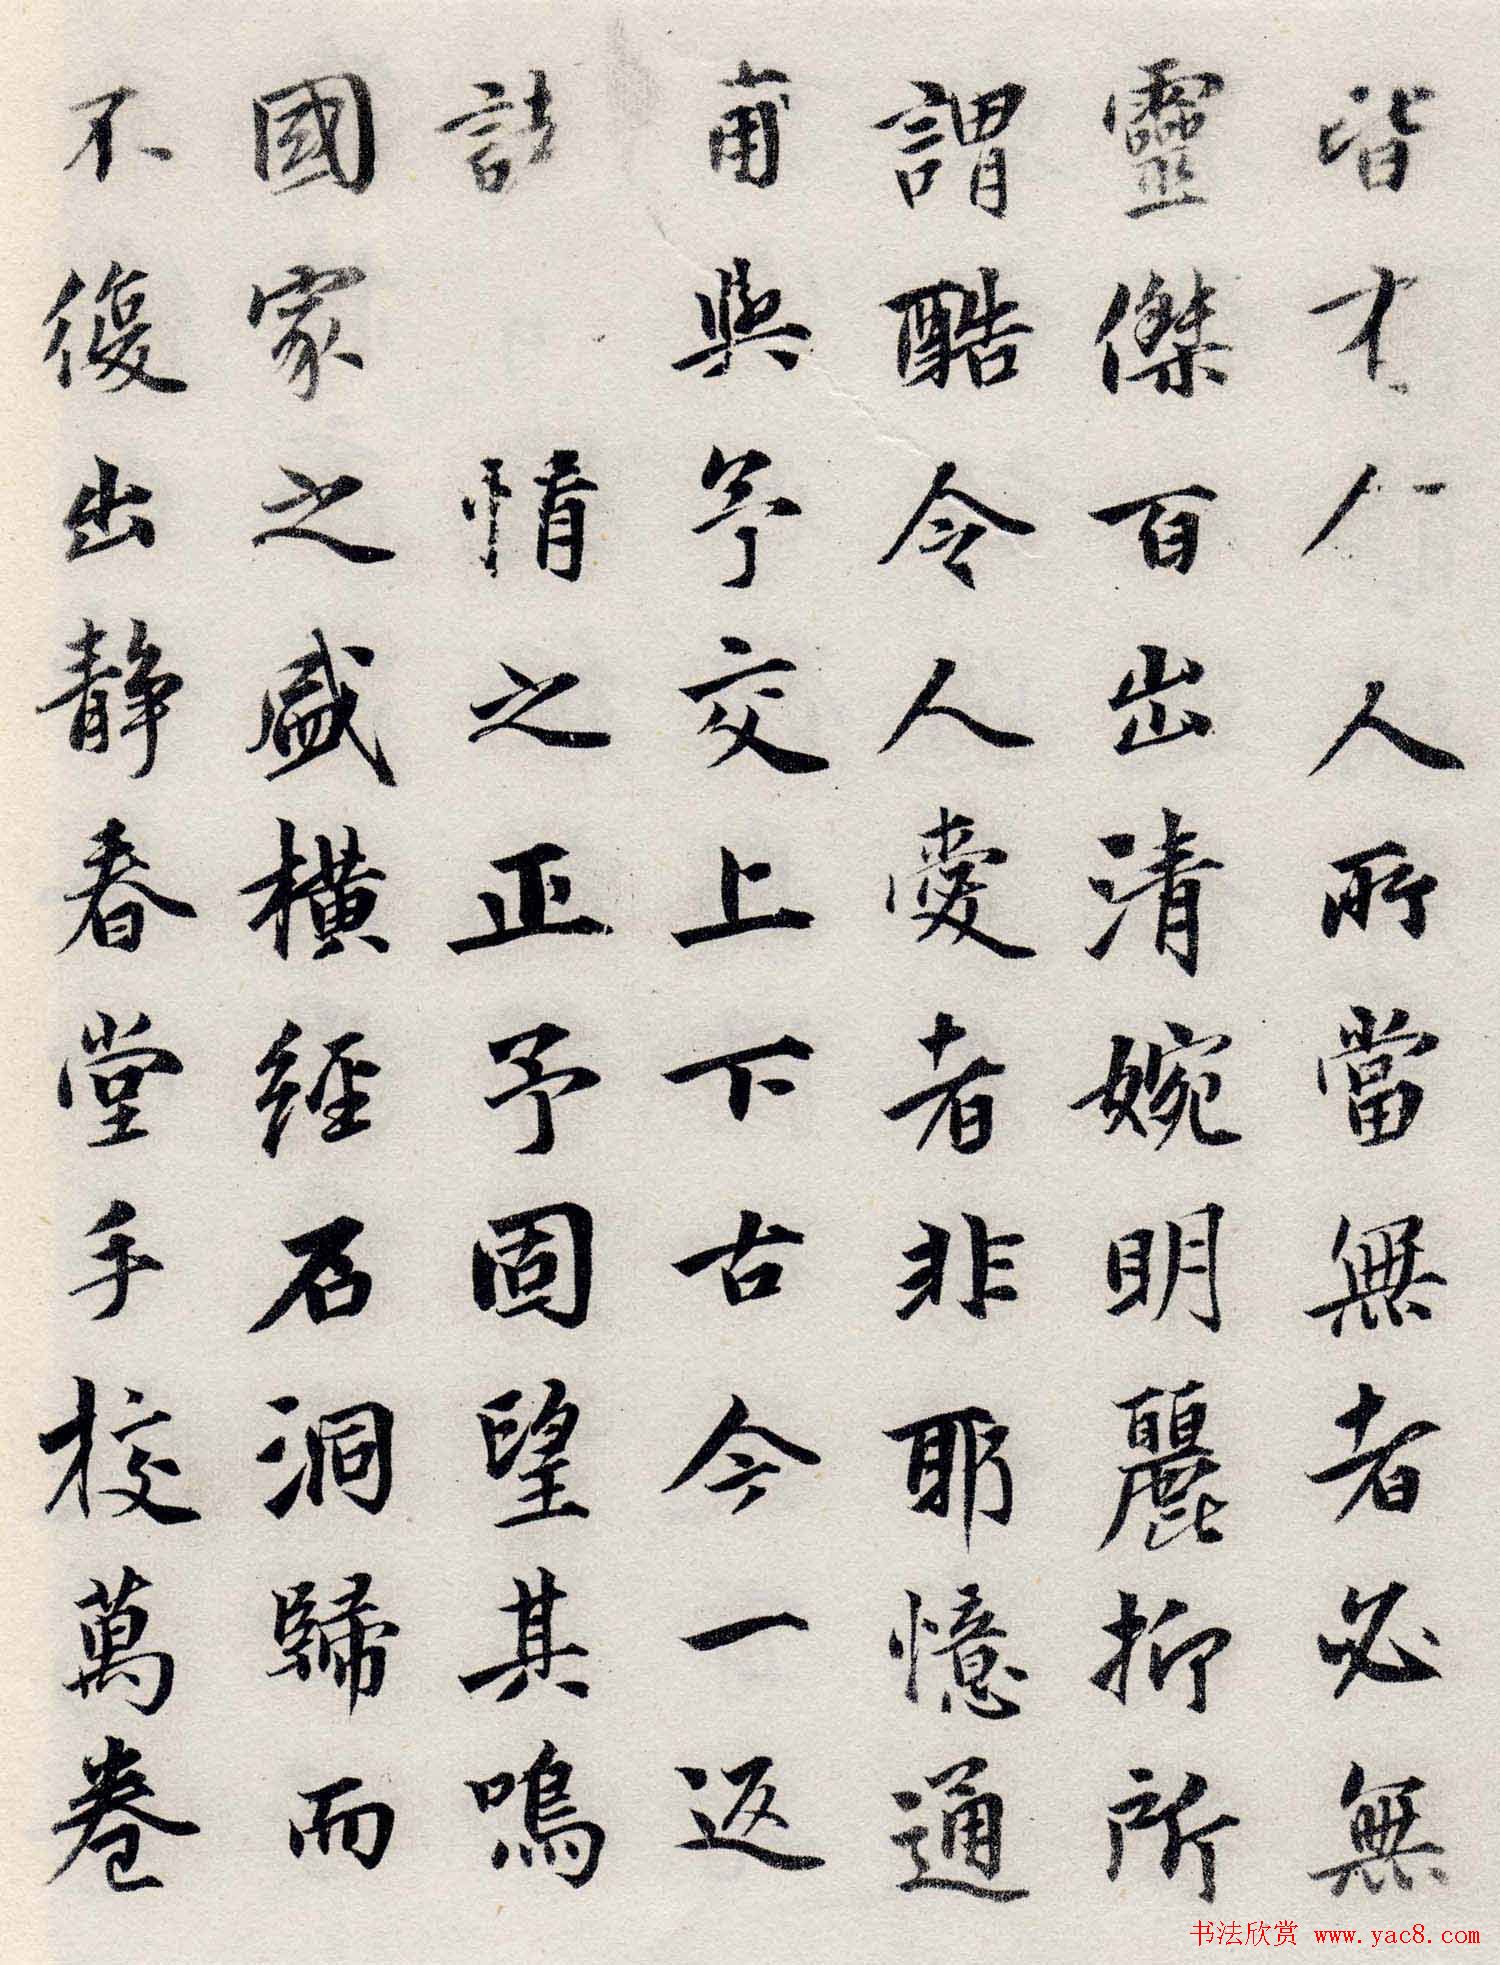 皆才人所當無者必無
靈傑百出清婉明麗抑所
謂酷令人愛者非耶憶通
甫與予交上下古今一返
詩情之正予固望其鳴
國家之盛橫經石洞歸而
不復出靜春堂手校萬卷
书法欣赏 www.yac8.com